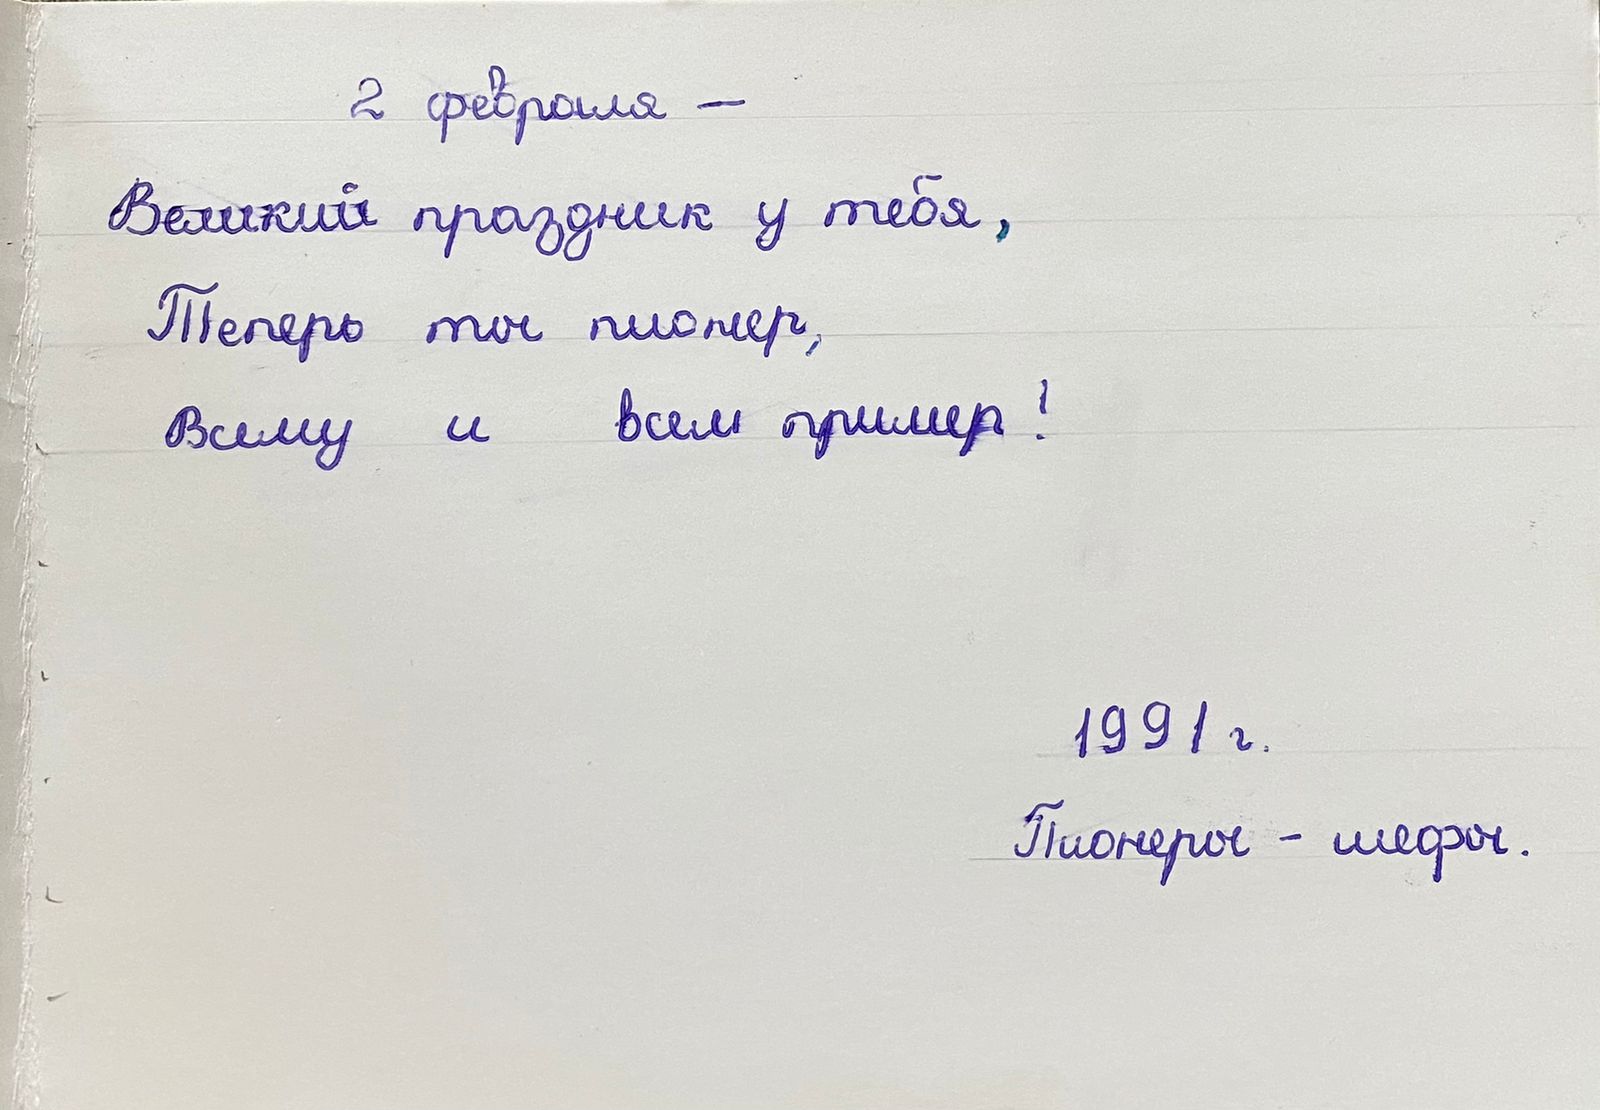 2 февраля –
Великий праздник у тебя,
Теперь ты пионер,
Всему и всем пример!
1991 г.
Пионеры – шефы.